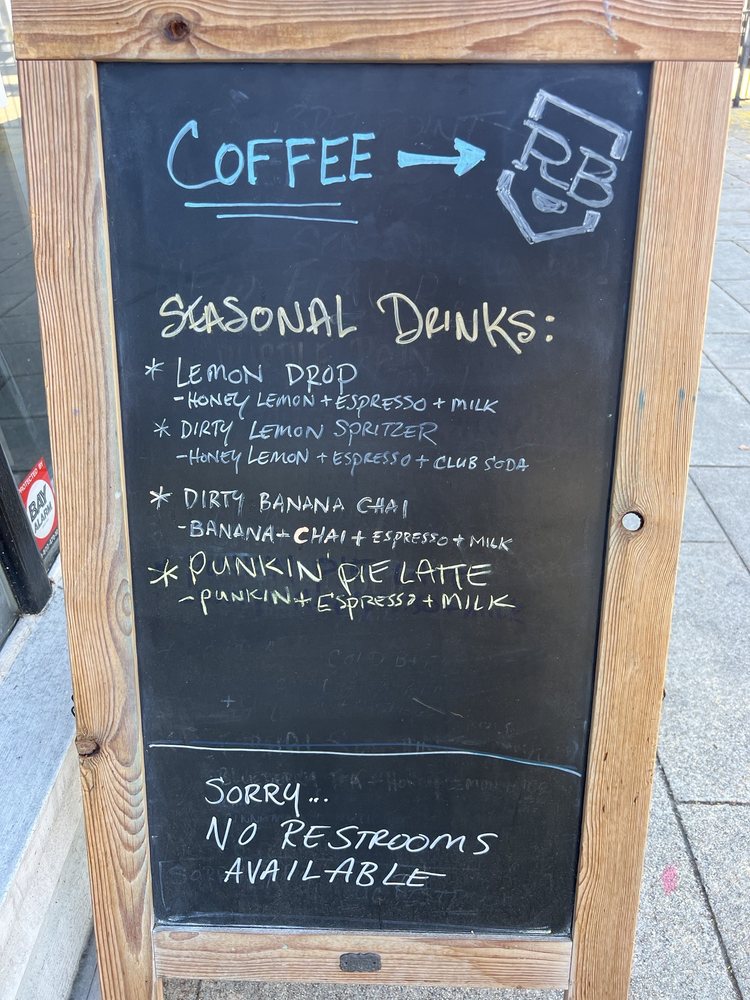 COFFEE → RB
SEASONAL DRINKS:
* LEMON DROP
- HONEY LEMON + ESPRESSO + MILK
* DIRTY LEMON SPRITZER
- HONEY LEMON + ESPRESSO + CLUB SODA
* DIRTY BANANA CHAI
- BANANA + CHAI + ESPRESSO + MILK
* PUNKIN' PIE LATTE
- PUNKIN + ESPRESSO + MILK
SORRY...
NO RESTROOMS
AVAILABLE
PROTECTED BY
BAY
ALARM